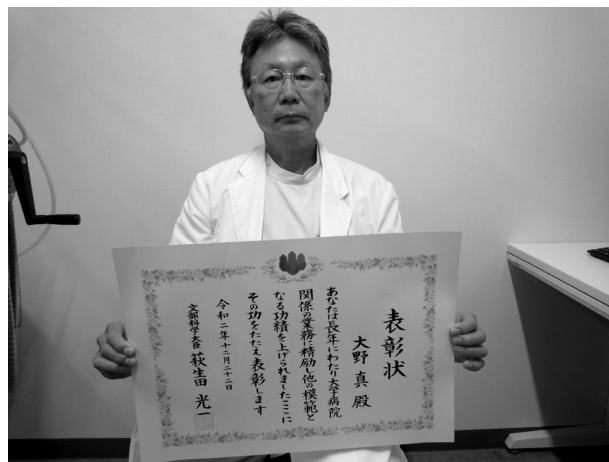 表彰状
大野 真 殿
あなたは長年にわたり大学病院
関係の業務に精励し他の模範と
なる功績を上げられましたここに
その功をたたえ表彰します
令和二年十二月二十二日
文部科学大臣 萩生田 光一